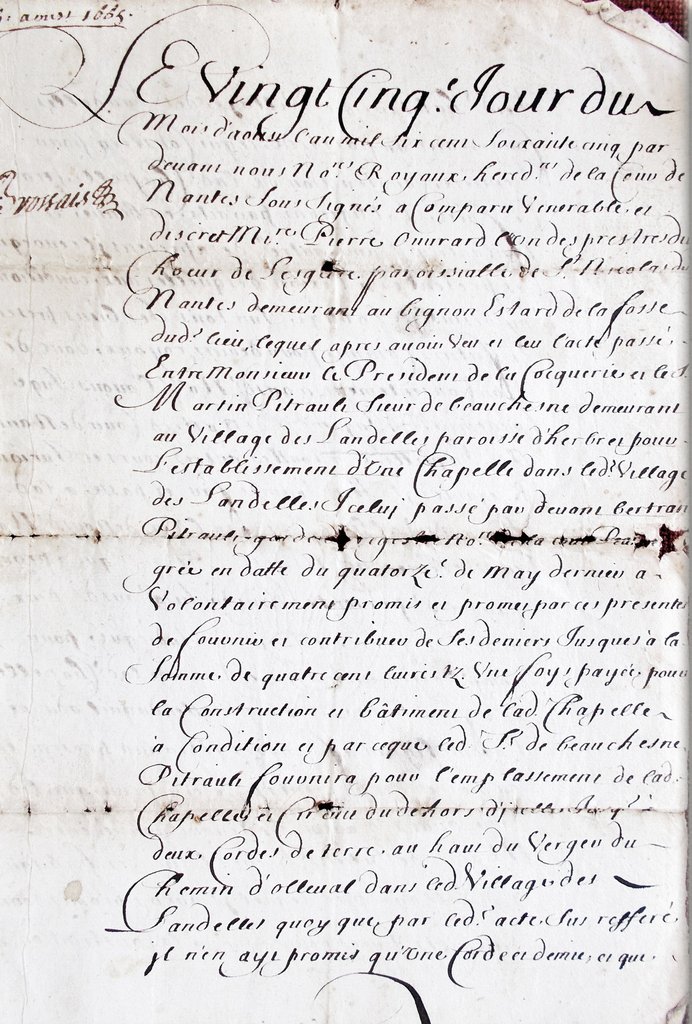 aoust 1665.
Le Vingt Cinq.e Jour du
Mois d'aoust l'an mil six cent soixante cinq par
devant nous No.res Royaux hered.res de la Cour de
Nantes Sous Signés a Comparu Venerable et
discret Mi.re Pierre Ouurard l'un des prestres du
Choeur de L'esglise paroissialle de St. Nicolas de
Nantes demeurant au bignon Estard de la fosse
dud.t lieu, lequel apres auoir Veu et leu l'acte passé
Entre Monsieur le President de la Cocquerie et le S.
Martin Pitrault Sieur de beauchesne demeurant
au Village des Landelles paroisse d'herbret pour
L'establissement d'Une Chapelle dans led.t Village
des Landelles Iceluy passé par devant bertran
Pitrault garde No.e de la cour
grée en datte du quatorze.e de May dernier a
Volontairement promis et promet par ces presentes
de fournir et contribuer de Ses deniers Jusques a la
Somme de quatre cent liures tz. Une foys payée pour
la Construction et bâtiment de lad. Chapelle
a Condition et parceque led. Sr. de beauchesne
Pitrault fournira pour l'emplassement de lad.
Chapelle et Ciruit du dehors d'jcelle Jusq.
deux Cordes de terre au haut du Verger du
Chemin d'olleual dans led. Village des
Landelles quoy que par led.t acte Sus refferé
jl n'en ayt promis qu'Une Corde et demie, et que